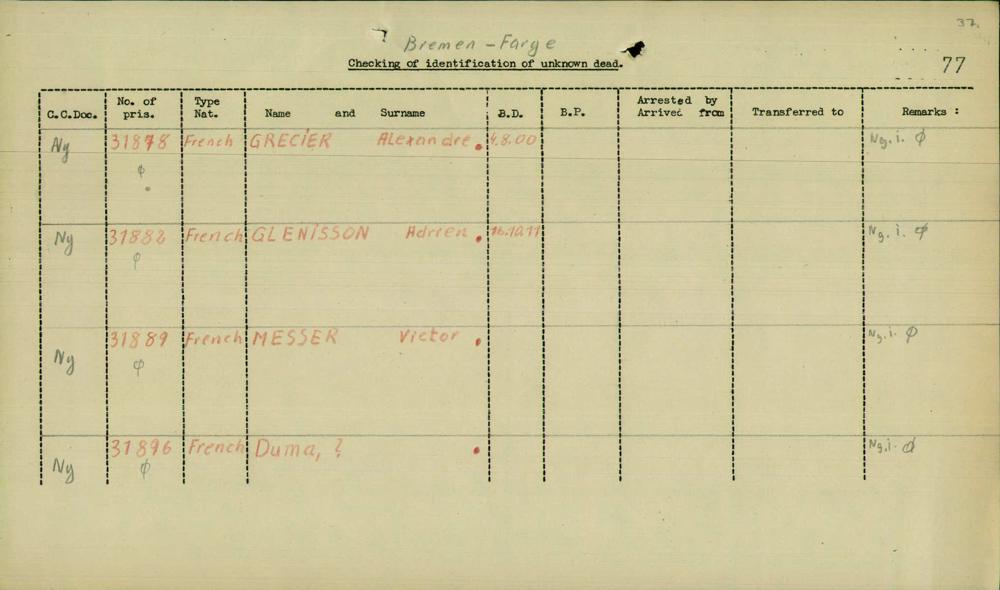 37.
Bremen - Farge
Checking of identification of unknown dead.
77
C.C.Doc. No. of pris. Type Nat. Name and Surname B.D. B.P. Arrested by Arrived from Transferred to Remarks :
Ny 31878 French GRECIER ALexandre. 4.8.00 Ng. i. φ
φ
Ny 31882 French GLENISSON Adrien. 16.10.11 Ng. i. φ
φ
Ny 31889 French MESSER Victor. Ng. i. φ
φ
Ny 31896 French Duma, ? . Ng. i. φ
φ